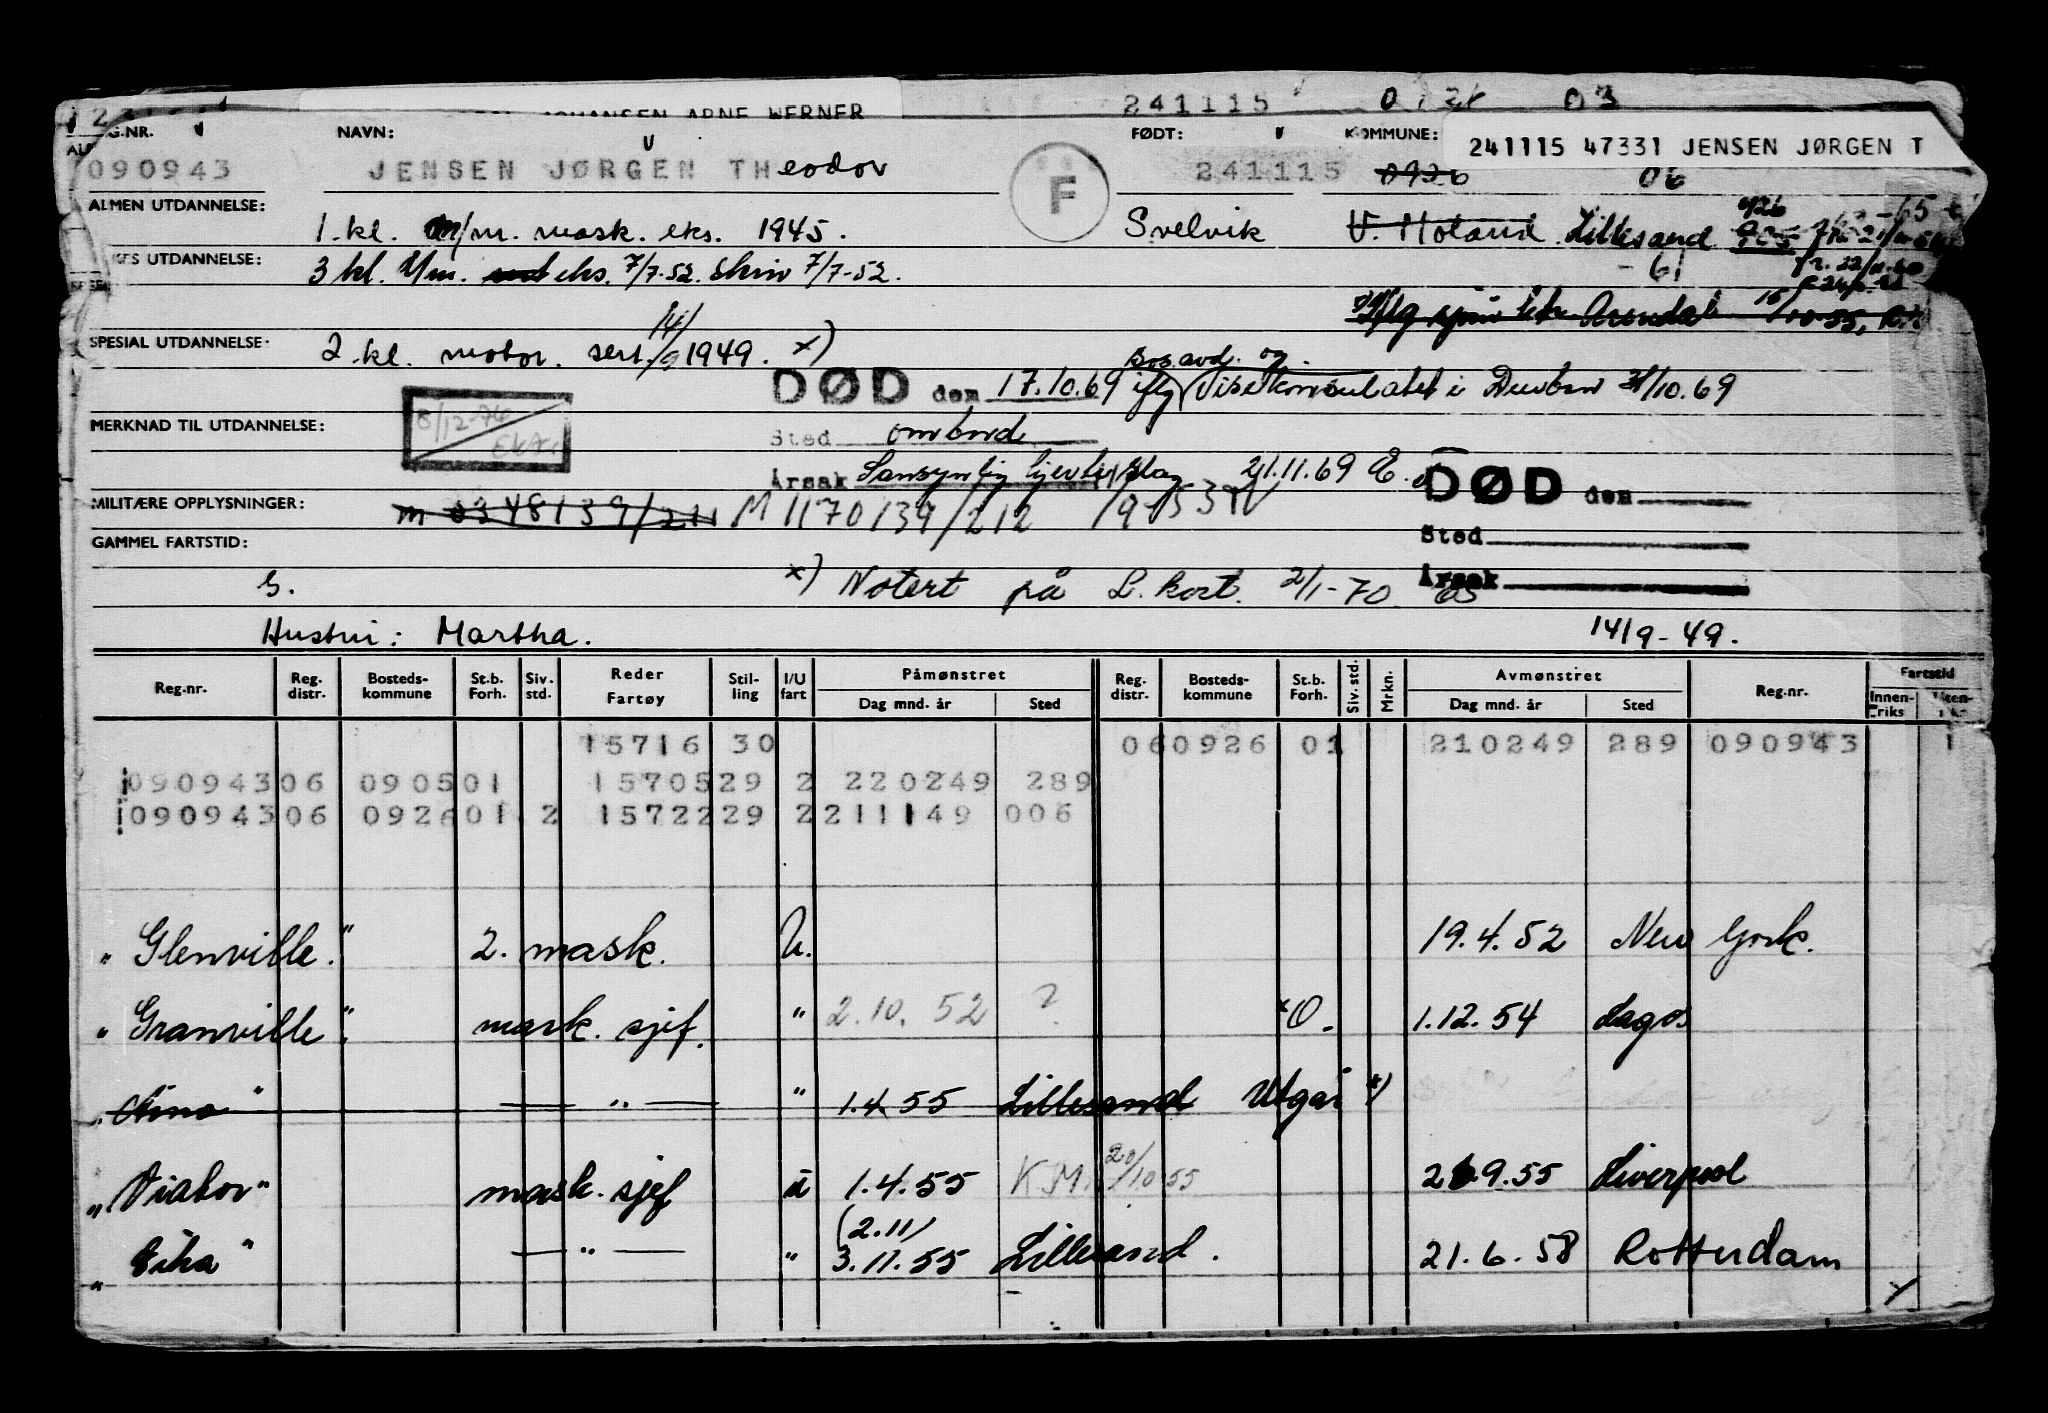 JOHANSEN ARNE WERNER 241115 03
G.NR. NAVN: FØDT: KOMMUNE: 241115 47331 JENSEN JØRGEN T
090943 JENSEN JØRGEN THeodor F 241115 0926 06
ALMEN UTDANNELSE: 1. kl. m/m. mask. eks. 1945. Svelvik V. Moland Lillesand
ES UTDANNELSE: 3 kl. U/m. eks. 7/7-52. Skriv 7/7-52. - 61
Arendal
SPESIAL UTDANNELSE: 2. kl. motor. sert. 14/9 1949. x)
DØD den 17.10.69 iflg Sosavd. og Visekonsulatet i Durban 21/10.69
8/12-74
MERKNAD TIL UTDANNELSE: Sted ombord
Årsak Sansynlig hjerteslag 21.11.69 E. DØD den
MILITÆRE OPPLYSNINGER: m 0348139/211 M 1170139/212
Sted
GAMMEL FARTSTID:
x) Notert på L. kort. 2/1-70. Årsak
Hustru: Martha. 14/9-49.
Reg.nr. Reg. distr. Bosteds- kommune St.b. Forh. Siv. std. Reder Fartøy Stil- ling I/U fart Påmønstret Dag mnd. år Sted Reg. distr. Bosteds- kommune St.b. Forh. Siv. std. Mrkn. Avmønstret Dag mnd. år Sted Reg.nr. Fartstid Innen- riks
15716 30 06 0926 01 210249 289 090943 1
090943 06 0905 01 15705 29 2 220249 289
090943 06 0926 01 2 15722 29 2 211149 006
" Glenville. " 2. mask. U. 19.4.52 New York.
" Granville " mask. sjef. " 2.10.52 ? O. 1.12.54 Lagos
" — " — " 1.4.55 Lillesand Utgår x)
" Viator " mask. sjef u 1.4.55 K.M. 20/10 55 26.9.55 Liverpool
(2.11)
" Eika " — " — " 3.11.55 Lillesand. 21.6.58 Rotterdam